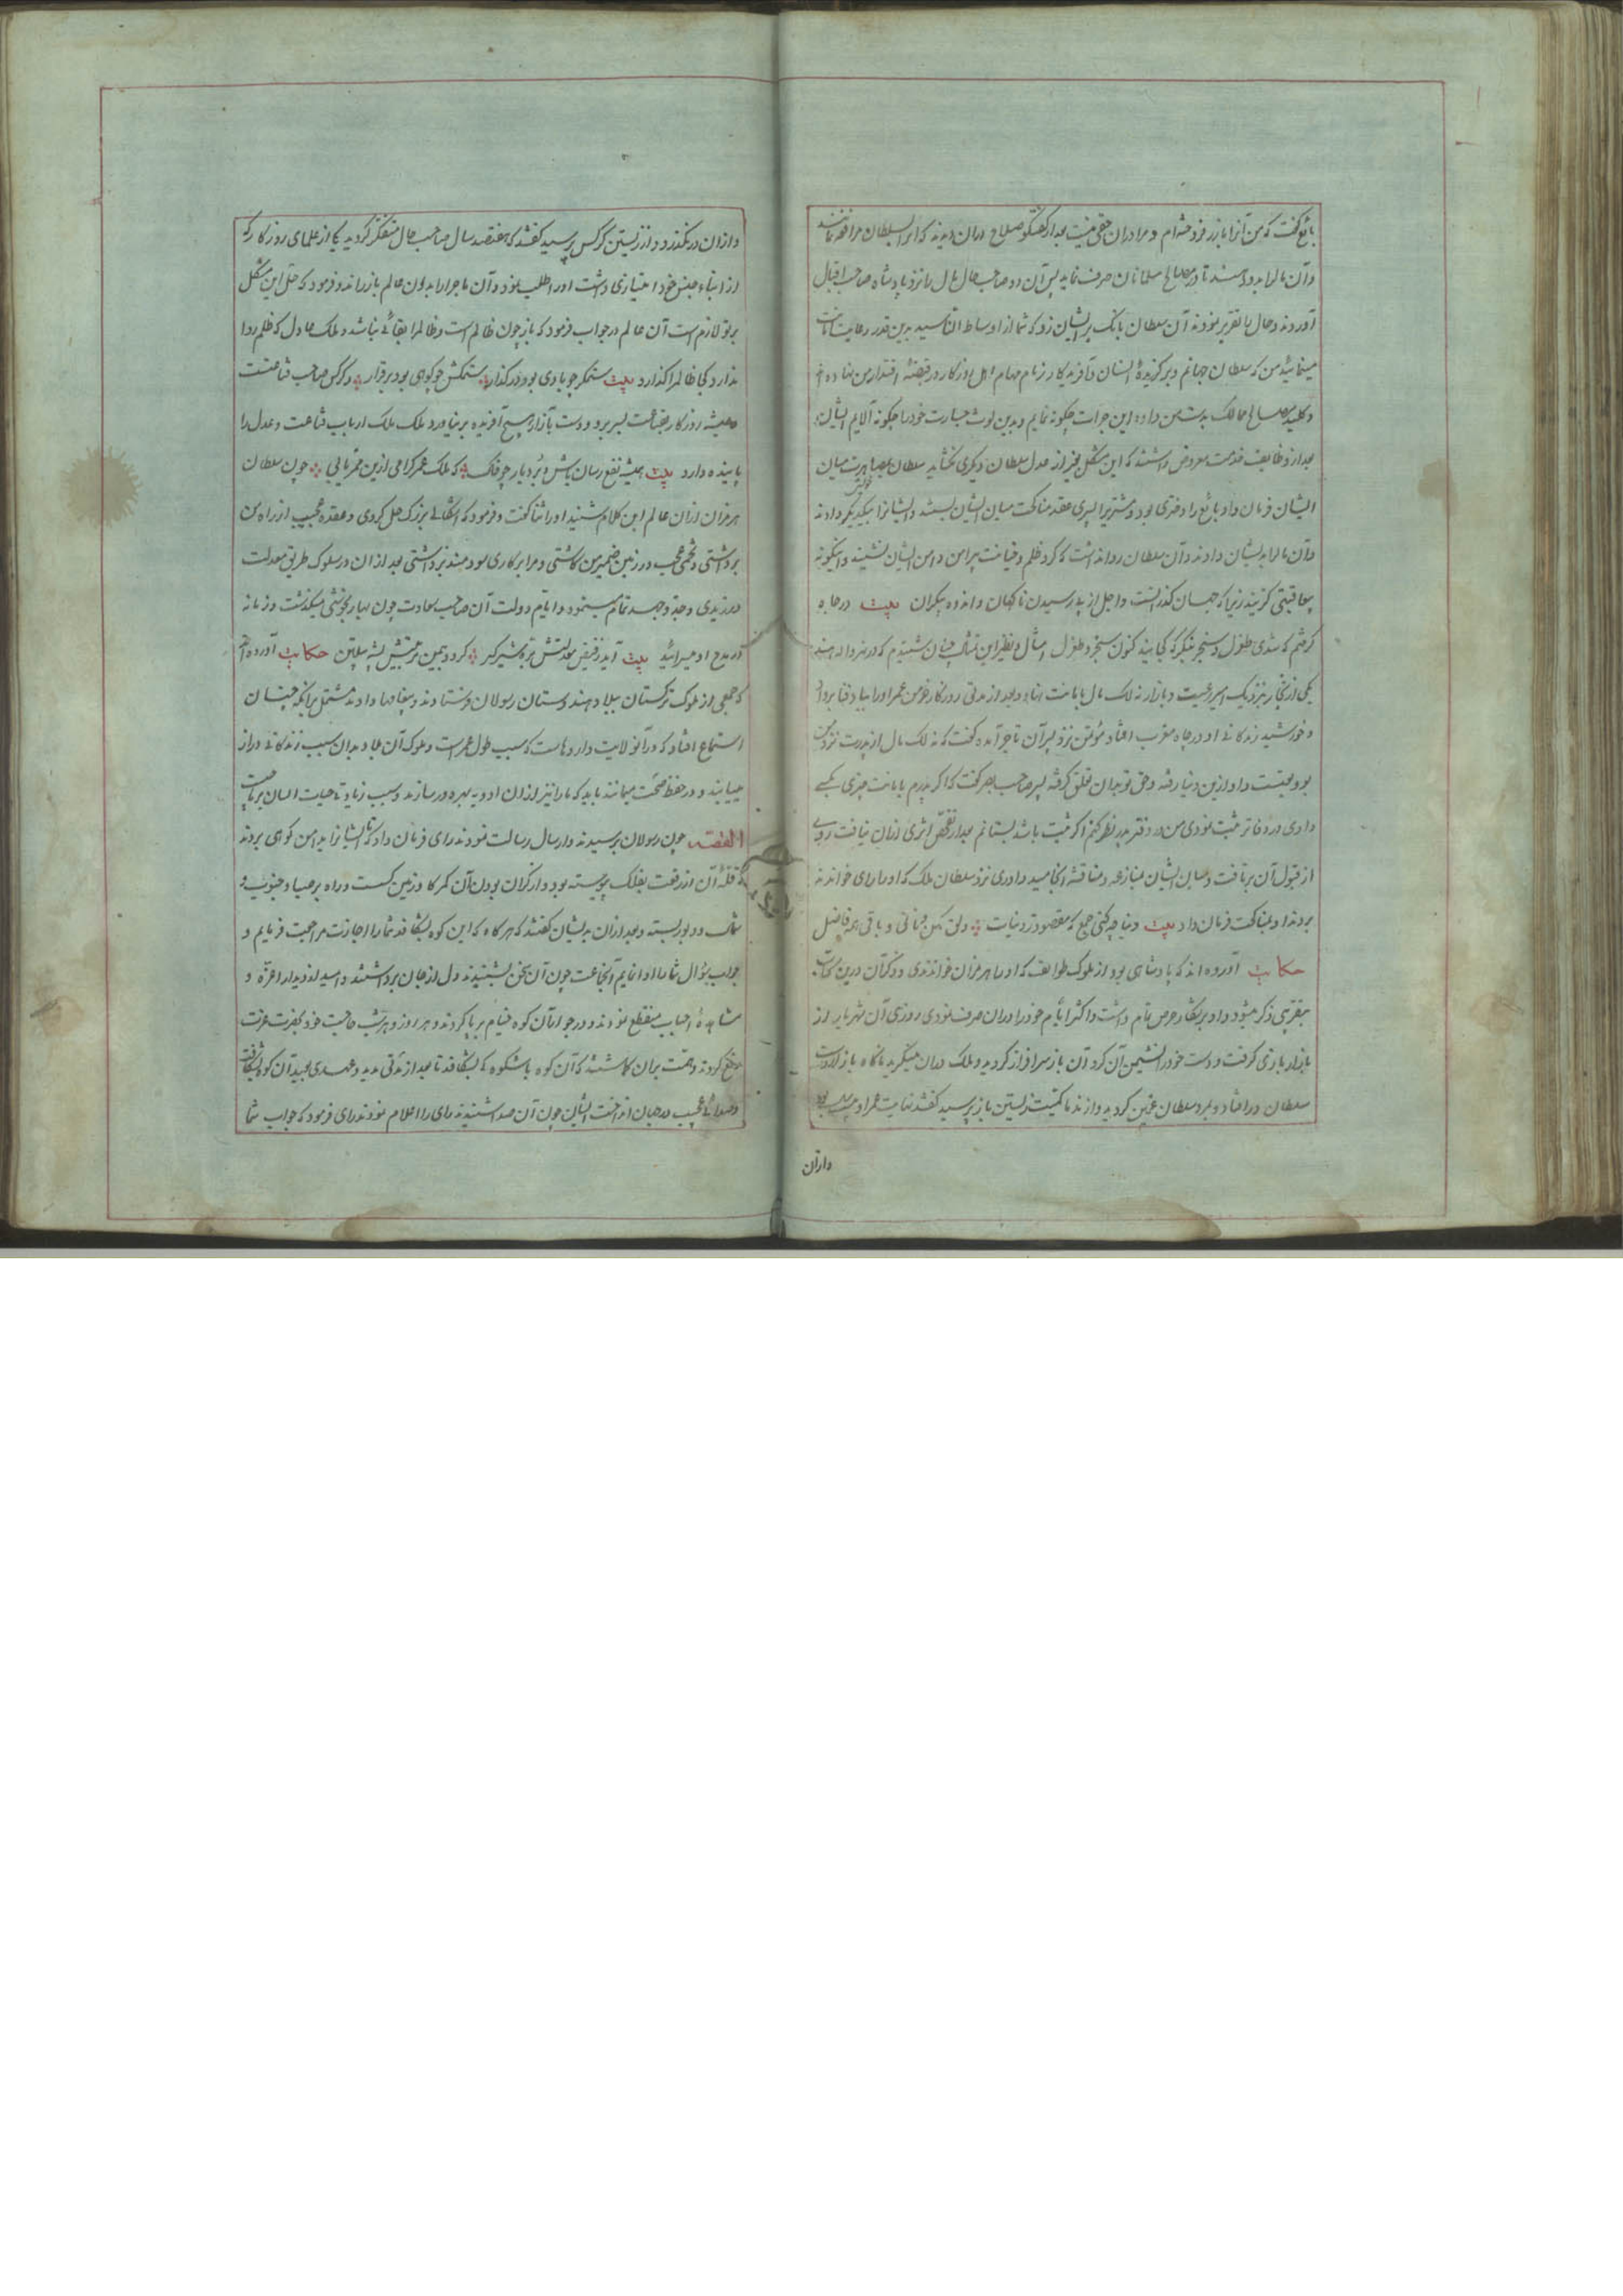 بائع گفت که من آنرا بازر فروخته‌ام و مرا دران حقی نیست بعد از گفتگو صلاح دران دیدند که انرا بسلطان مرافعه نمایند
وآن مال را بدو دهند تا در مصالح مسلمانان صرف نماید پس آن دو صاحب حال مال را نزد پادشاه صاحب اقبال
آوردند و حال را تقریر نمودند آن سلطان بانک بر ایشان زد که شما از اوساط الناسید بدین قدر رعایت امانت
مینمایید من که سلطان جهانم و برکزیدهٔ انسان و آفریدکار زمام مهام اهل روزکار در قبضهٔ اقتدار من نهاده
و کلید مصالح ممالک بدست من داده این جرات چکونه نمایم و بدین لوث جسارت خود را چکونه آلایم ایشان
بعد از وظایف خدمت معروض داشتند که این مشکل بغیر از عدل سلطان دیکری نکشاید سلطان بمصاهرت میان
ایشان فرمان داد بائع را دختری بود و مشتری را پسری عقد مناکحت میان ایشان ببستند و ایشانرا بیکدیکر دادند
وآن مال را بدیشان دادند وآن سلطان روا نداشت که کرد ظلم و خیانت پیرامن دامن ایشان نشیند و اینکونه
بعاقبتی کزینند زیرا که جهان کذرانست و اجل از پدر رسیدن ناکهان و اندوه بیکران بیت در جاه
کرفتم که شدی طغرل و سنجر بنکر که کجایند کنون سنجر و طغرل امثال و نظیر این تمثال چنان شنیدم که در نهرواله هند
یکی از تجار نزدیک امیر رعیت و بازار نه لک مال بامانت نهاد و بعد از مدتی روزکار خرمن عمر او را بباد فنا برداد
و خورشید زندکانی او در چاه مغرب افتاد مؤتمن نزد پسر آن تاجر آمده کفت که نه لک مال از پدرت نزد من
بود بعینست داو ازین دنیا رفته و حق تو بدان تعلق کرفته پسر صاحب بصر کفت که اکر پدرم بامانت چیزی بکسی
دادی در دفاتر ثبت نمودی من در دفتر پدر نظر کنم اکر ثبت باشد بستانم بعد از تفحص اثری ازان نیافت روی
از قبول آن برتافت و میان ایشان منازعه و مناقشه انجامید و داوری نزد سلطان ملک که او را رای خوانند
بردند او بمناکحت فرمان داد بیت دنیا چه کنی جمع که مقصود ز دنیات ولق کهن و نانی و باقی همه فاضل
حکایت آورده اند که پادشاهی بود از ملوک طوایف که او را هرمزان خواندندی و ذکر آن درین کتاب
بتقریبی ذکر میشود و او بر شکار حرص تمام داشت و اکثر ایام خود را دران صرف نمودی روزی آن شهریار از
بازدار بازی کرفت و دست خود را نشیمن آن کرد آن باز سرافراز کردید و ملک دران مینکرید ناکاه باز از دست
سلطان در افتاد و بمرد سلطان غمین کردید و از ندما کمیت زیستن باز پرسید کفتند نهایت عمر او بیست سال بود
وازان
وازان در نکذرد و از زیستن کرکس پرسید کفتند که هفتصد سال صاحب حال متفکر کردید یکی از علمای روزکار که
از ابناء جنس خود امتیازی داشت او را طلب نمود و آن ماجرا را بدان عالم باز راند و فرمود که حل این مشکل
بر تو لازمست آن عالم در جواب فرمود که باز چون ظالم است و ظالمرا بقائی نباشد و ملک عادل که ظلم روا
ندارد کی ظالمرا کذارد بیت ستمکر چو بادی بود در کذار ستمکش چو کوهی بود برقرار و کرکس صاحب قناعتست
همیشه روزکار بقناعت بسر برد و دست بآزار هیچ آفریده برنیاورد ملک ملک ارباب قناعت و عدل را
پاینده دارد بیت همیشه نفع رسان باش و بردبار چو خاک که ملک عمر کرامی ازین ممر یابی چون سلطان
هرمزان ازان عالم این کلام شنید او را ثنا کفت و فرمود که اشکالی بزرک حل کردی و عقده عجیب از راه من
برداشتی و تخمی عجب در زمین ضمیر من کاشتی و مرا بر کاری سودمند برداشتی بعد ازان در سلوک طریق معدلت
ورزیدی و جد و جهد تمام مینمود و ایام دولت آن صاحب سعادت چون بهار بخوشی میکذشت و زمانه
در مدح او میسرائید بیت آید ز فیض معدلتش بره شیرکیر کردد بیمن تربیتش پشه پیلتن حکایت آورده‌اند
که جمعی از ملوک ترکستان ببلاد هندوستان رسولان فرستادند و پیغامها دادند مشتمل برانکه چنان
استماع افتاد که در آنولایت داروهاست که سبب طول عمر است و ملوک آن بلاد بدان سبب زندکانی دراز
مییابند و در حفظ صحت میمانند باید که ما را نیز ازان ادویه بهره‌ور سازند و سبب زیادتی حیات انسان بر ماست
القصه چون رسولان برسیدند و ارسال رسالت نمودند رای فرمان داد که تا ایشانرا بدامن کوهی بردند
که قلهٔ آن از رفعت بفلک پیوسته بود و از کران بودن آن کمر کاو زمین کست و راه بر صبا و جنوب و
شمال و دبور بسته و بعد ازان بدیشان کفتند که هرکاه که این کوه بشکافد شما را اجازت مراجعت فرمایم و
جواب سؤال شما را ادا نمایم آن جماعت چون آن سخن بشنیدند دل از جان برداشتند و امید از دیدار اعزّه و
مشاهدهٔ احباب منقطع نمودند و در جوار آن کوه خیام برپا کردند و هر روز و هر شب حاجت خود بحضرت عزت
رفع کردند و همت بران کماشتند که آن کوه باشکوه کی بشکافد تا بعد از مدتی مدید و عهدی بعید آن کوه بشکافت
و صدائی عجیب در جهان انداخت ایشان چون آن صدا شنیدند رای را اعلام نمودند رای فرمود که جواب شما